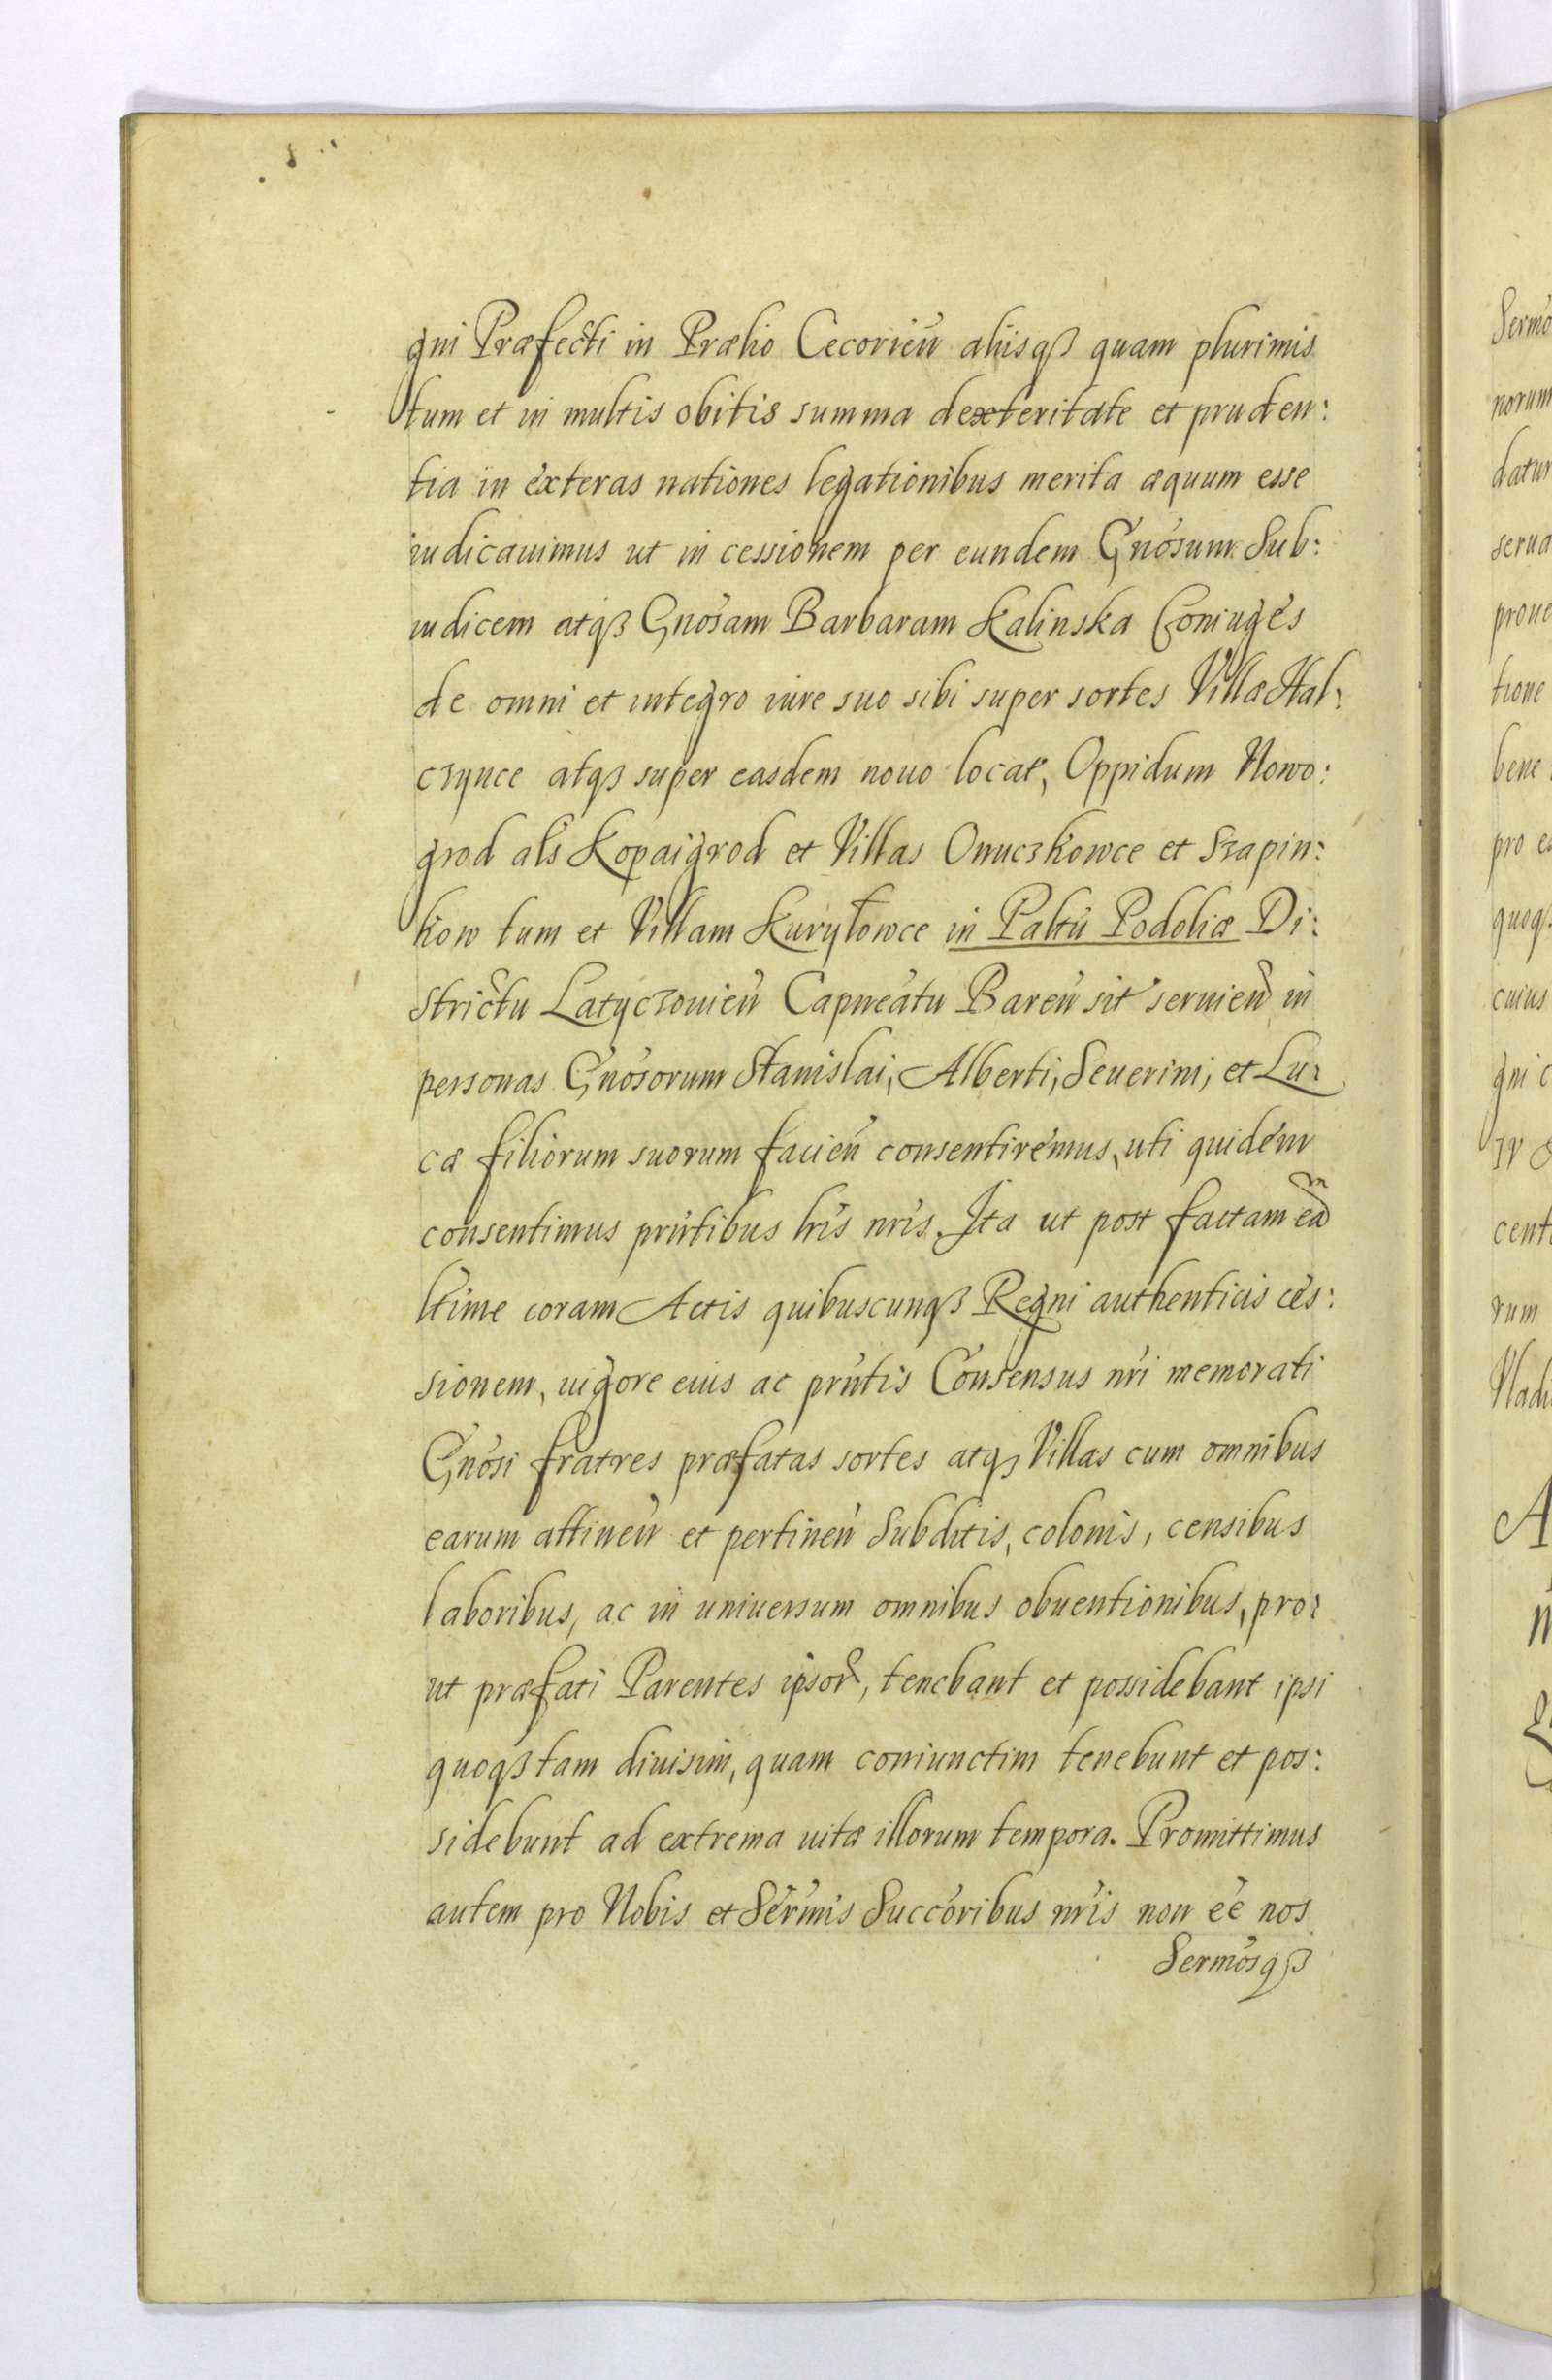 gni Præfecti in Prælio Cecorień aliisqꝫ quam plurimis
tum et in multis obitis summa dexteritate et pruden:
tia in exteras nationes legationibus merita æquum esse
iudicauimus ut in cessionem per eundem Gnosum Sub:
iudicem atqꝫ Gnosam Barbaram Kalinska Coniuges
de omni et integro iure suo sibi super sortes Villæ Hal:
czynce atqꝫ super easdem nouo locat, Oppidum Nowo:
grod als Kopaigrod et Villas Onuczkowce et Szapin:
kow tum et Villam Kuryłowce in Paltu Podoliæ Di:
strictu Latyczouień Capneatu Bareń sit seruień in
personas Gnosorum Stanislai, Alberti, Seuerini, et Lu:
cæ filiorum suorum facień consentiremus, uti quidem
consentimus prntibus lris nris. Ita ut post factam eam
ltime coram Actis quibuscunqꝫ Regni authenticis ces:
sionem, uigore eius ac prntis Consensus nri memorati
Gnosi fratres præfatas sortes atqꝫ Villas cum omnibus
earum attineń et pertineń Subditis, colonis, censibus
laboribus, ac in uniuersum omnibus obuentionibus, pro:
ut præfati Parentes ipsor, tenebant et possidebant ipsi
quoqꝫ tam diuisim, quam coniunctim tenebunt et pos:
sidebunt ad extrema uitæ illorum tempora. Promittimus
autem pro Nobis et Sermis Succoribus nris non ee nos
Sermosqꝫ